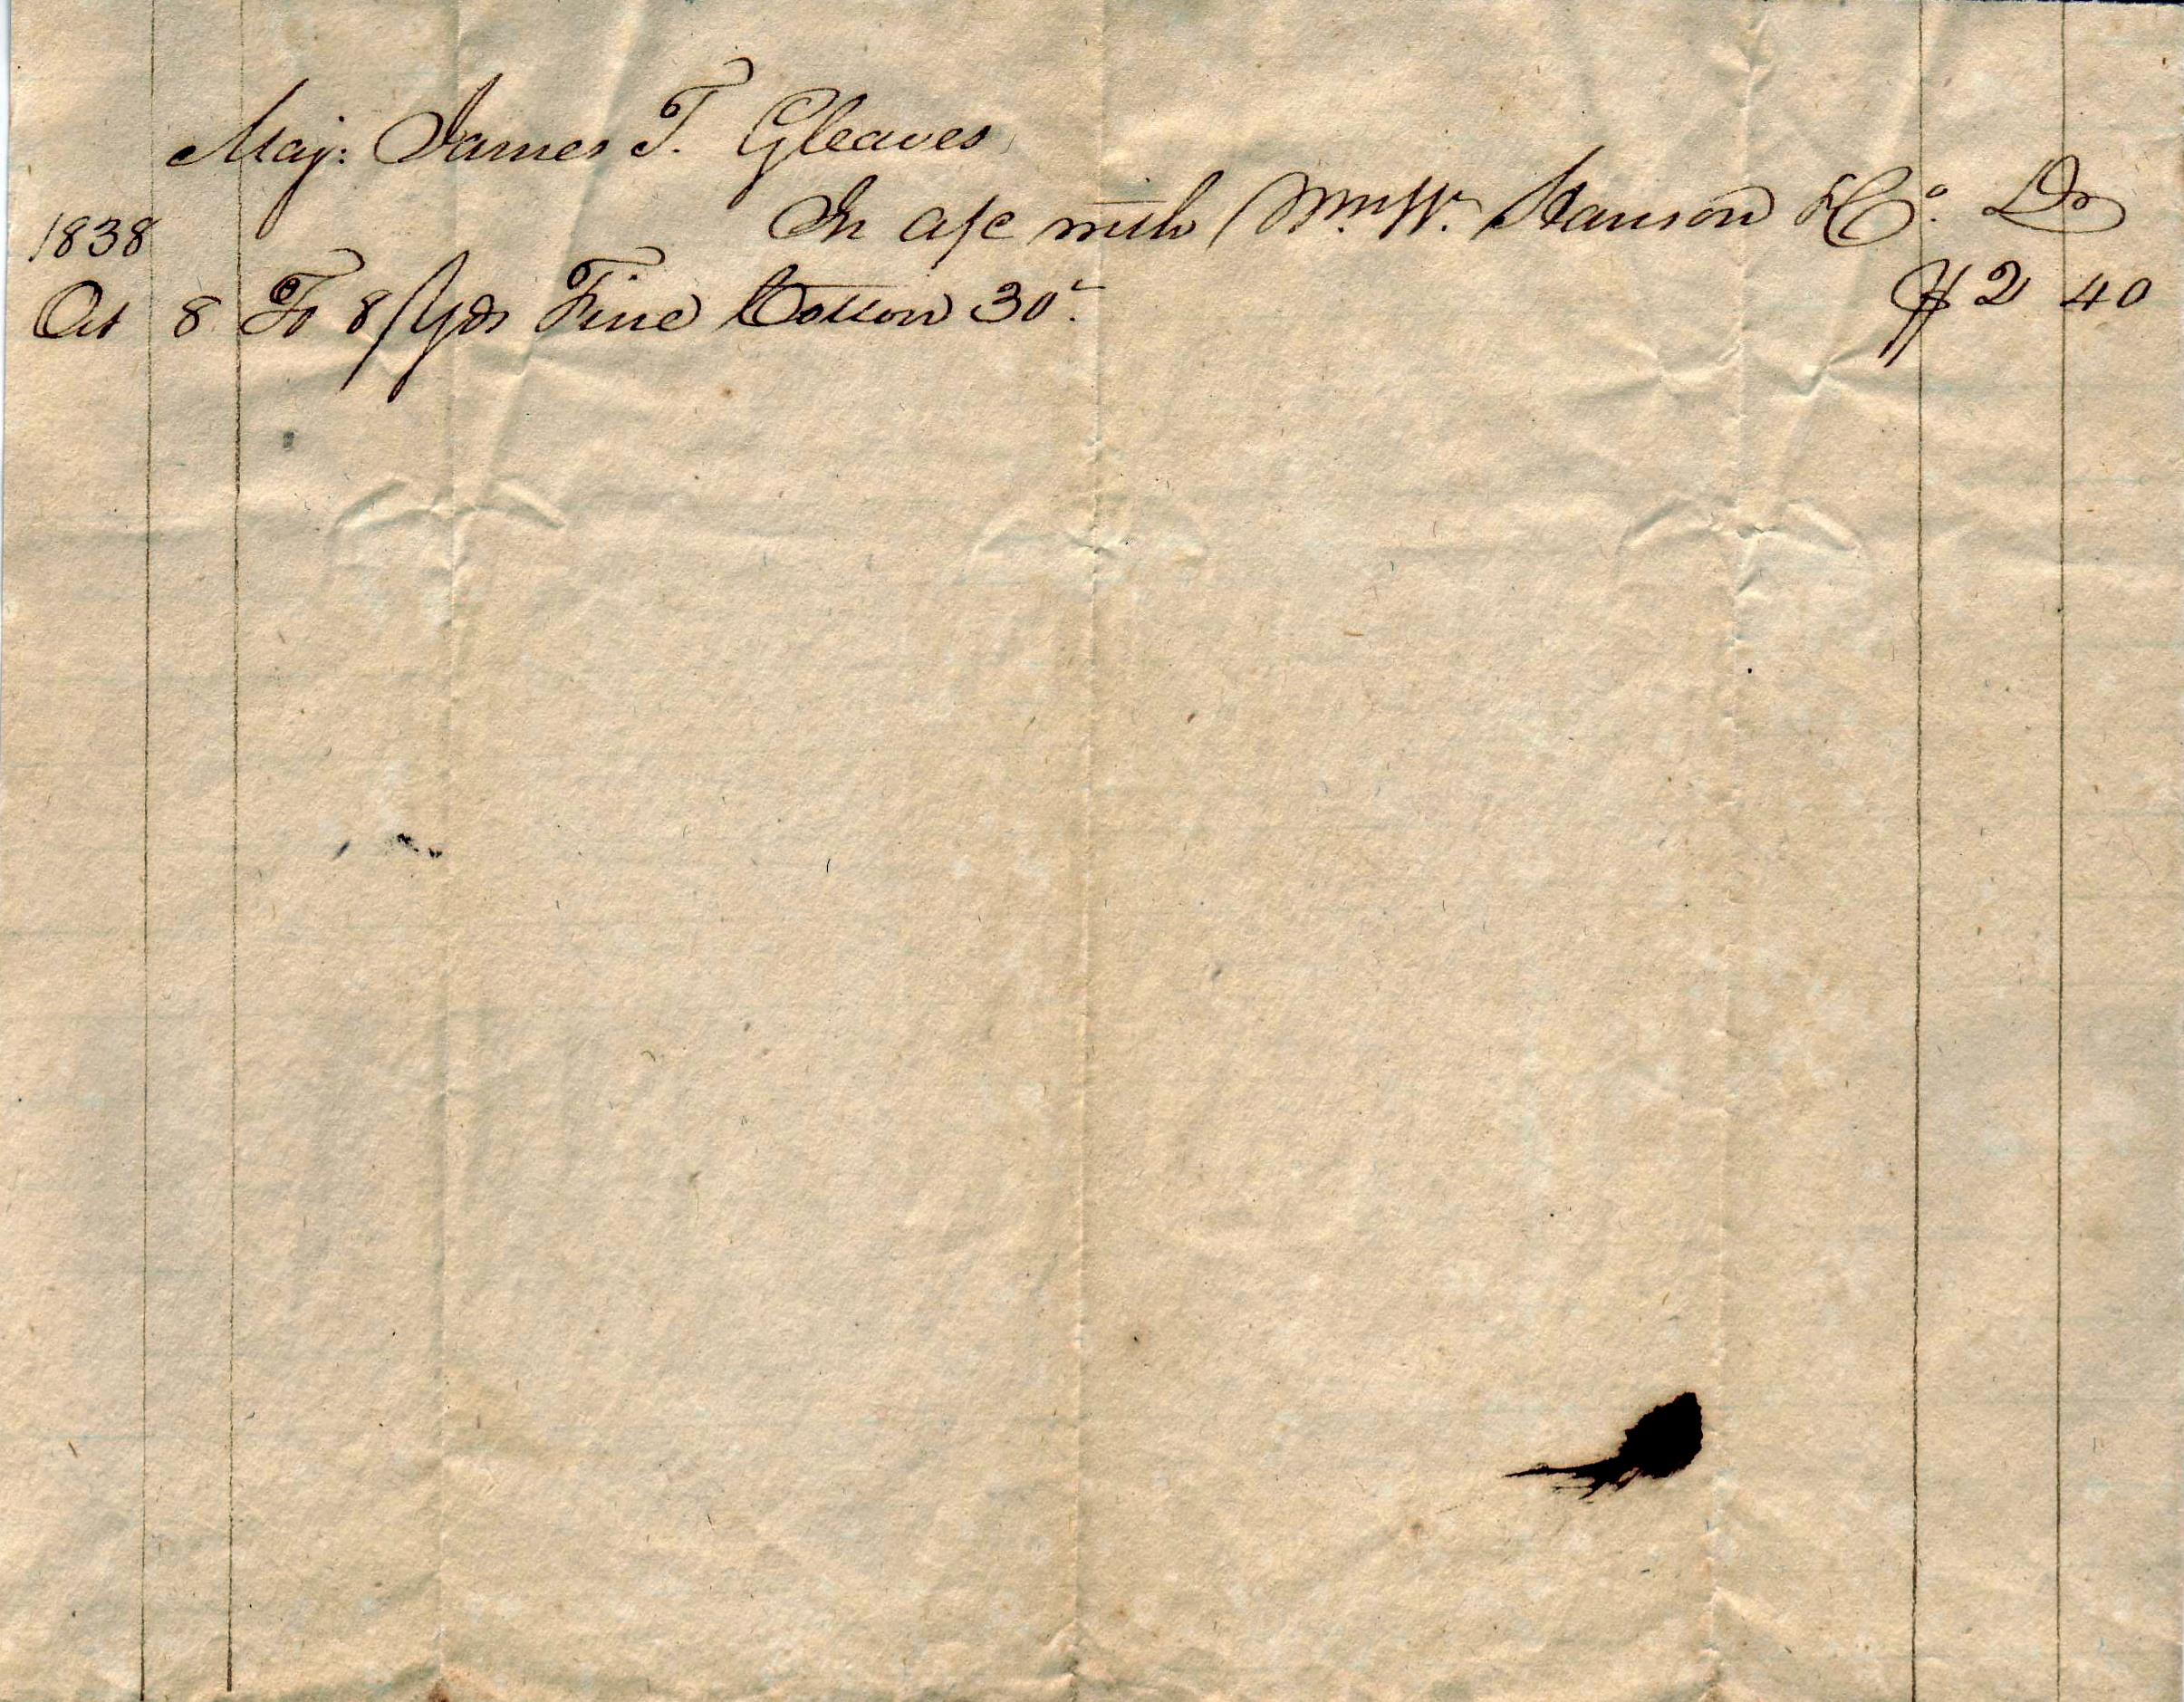 Maj: James T. Gleaves
1838 In a/c with Wm. W. Hanson & Co. Dr
Oct 8 To 8/Yds Fine Cotton 30c. $2 40